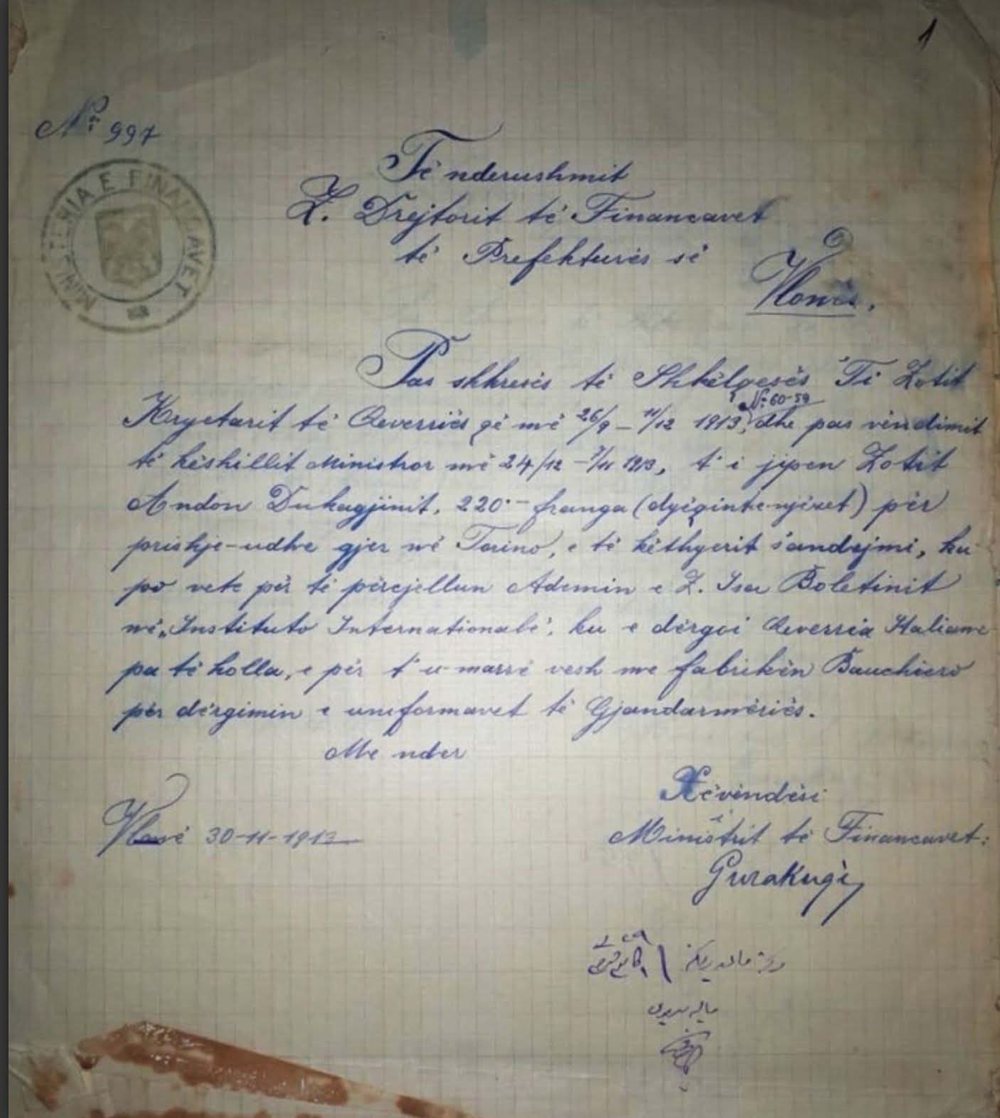 1
Nº: 997
MINISTERIA E FINANCAVET
Të nderushmit
Z. Drejtorit të Financavet
të Prefekturës së
Vlonës.
Pas shkresës të Shkëlqesës Ti Zotit
Nº: 60-59
Kryetarit të Qeverriës që më 26/9 - 11/12 1913, dhe pas vëndimit
të këshillit Ministror më 24/12 - 7/11 1913, t'i jipen Zotit
Andon Dukagjinit, 220·- franga (dyqint-e-njëzet) për
prishje-udhe gjer në Torino, e të këthyerit s'andejmi, ku
po vete për të përcjellun Ademin e Z. Isa Boletinit
në „Instituto Internationale", ku e dërgoi Qeverria Italiane
pa të holla, e për t'u-marrë vesh me fabrikën Bauchiero
për dërgimin e uniformavet të Gjandarmëriës.
Me nder
Zëvëndësi
i
Vlonë 30-11-1913
Ministrit të Financavet:
Gurakuqi